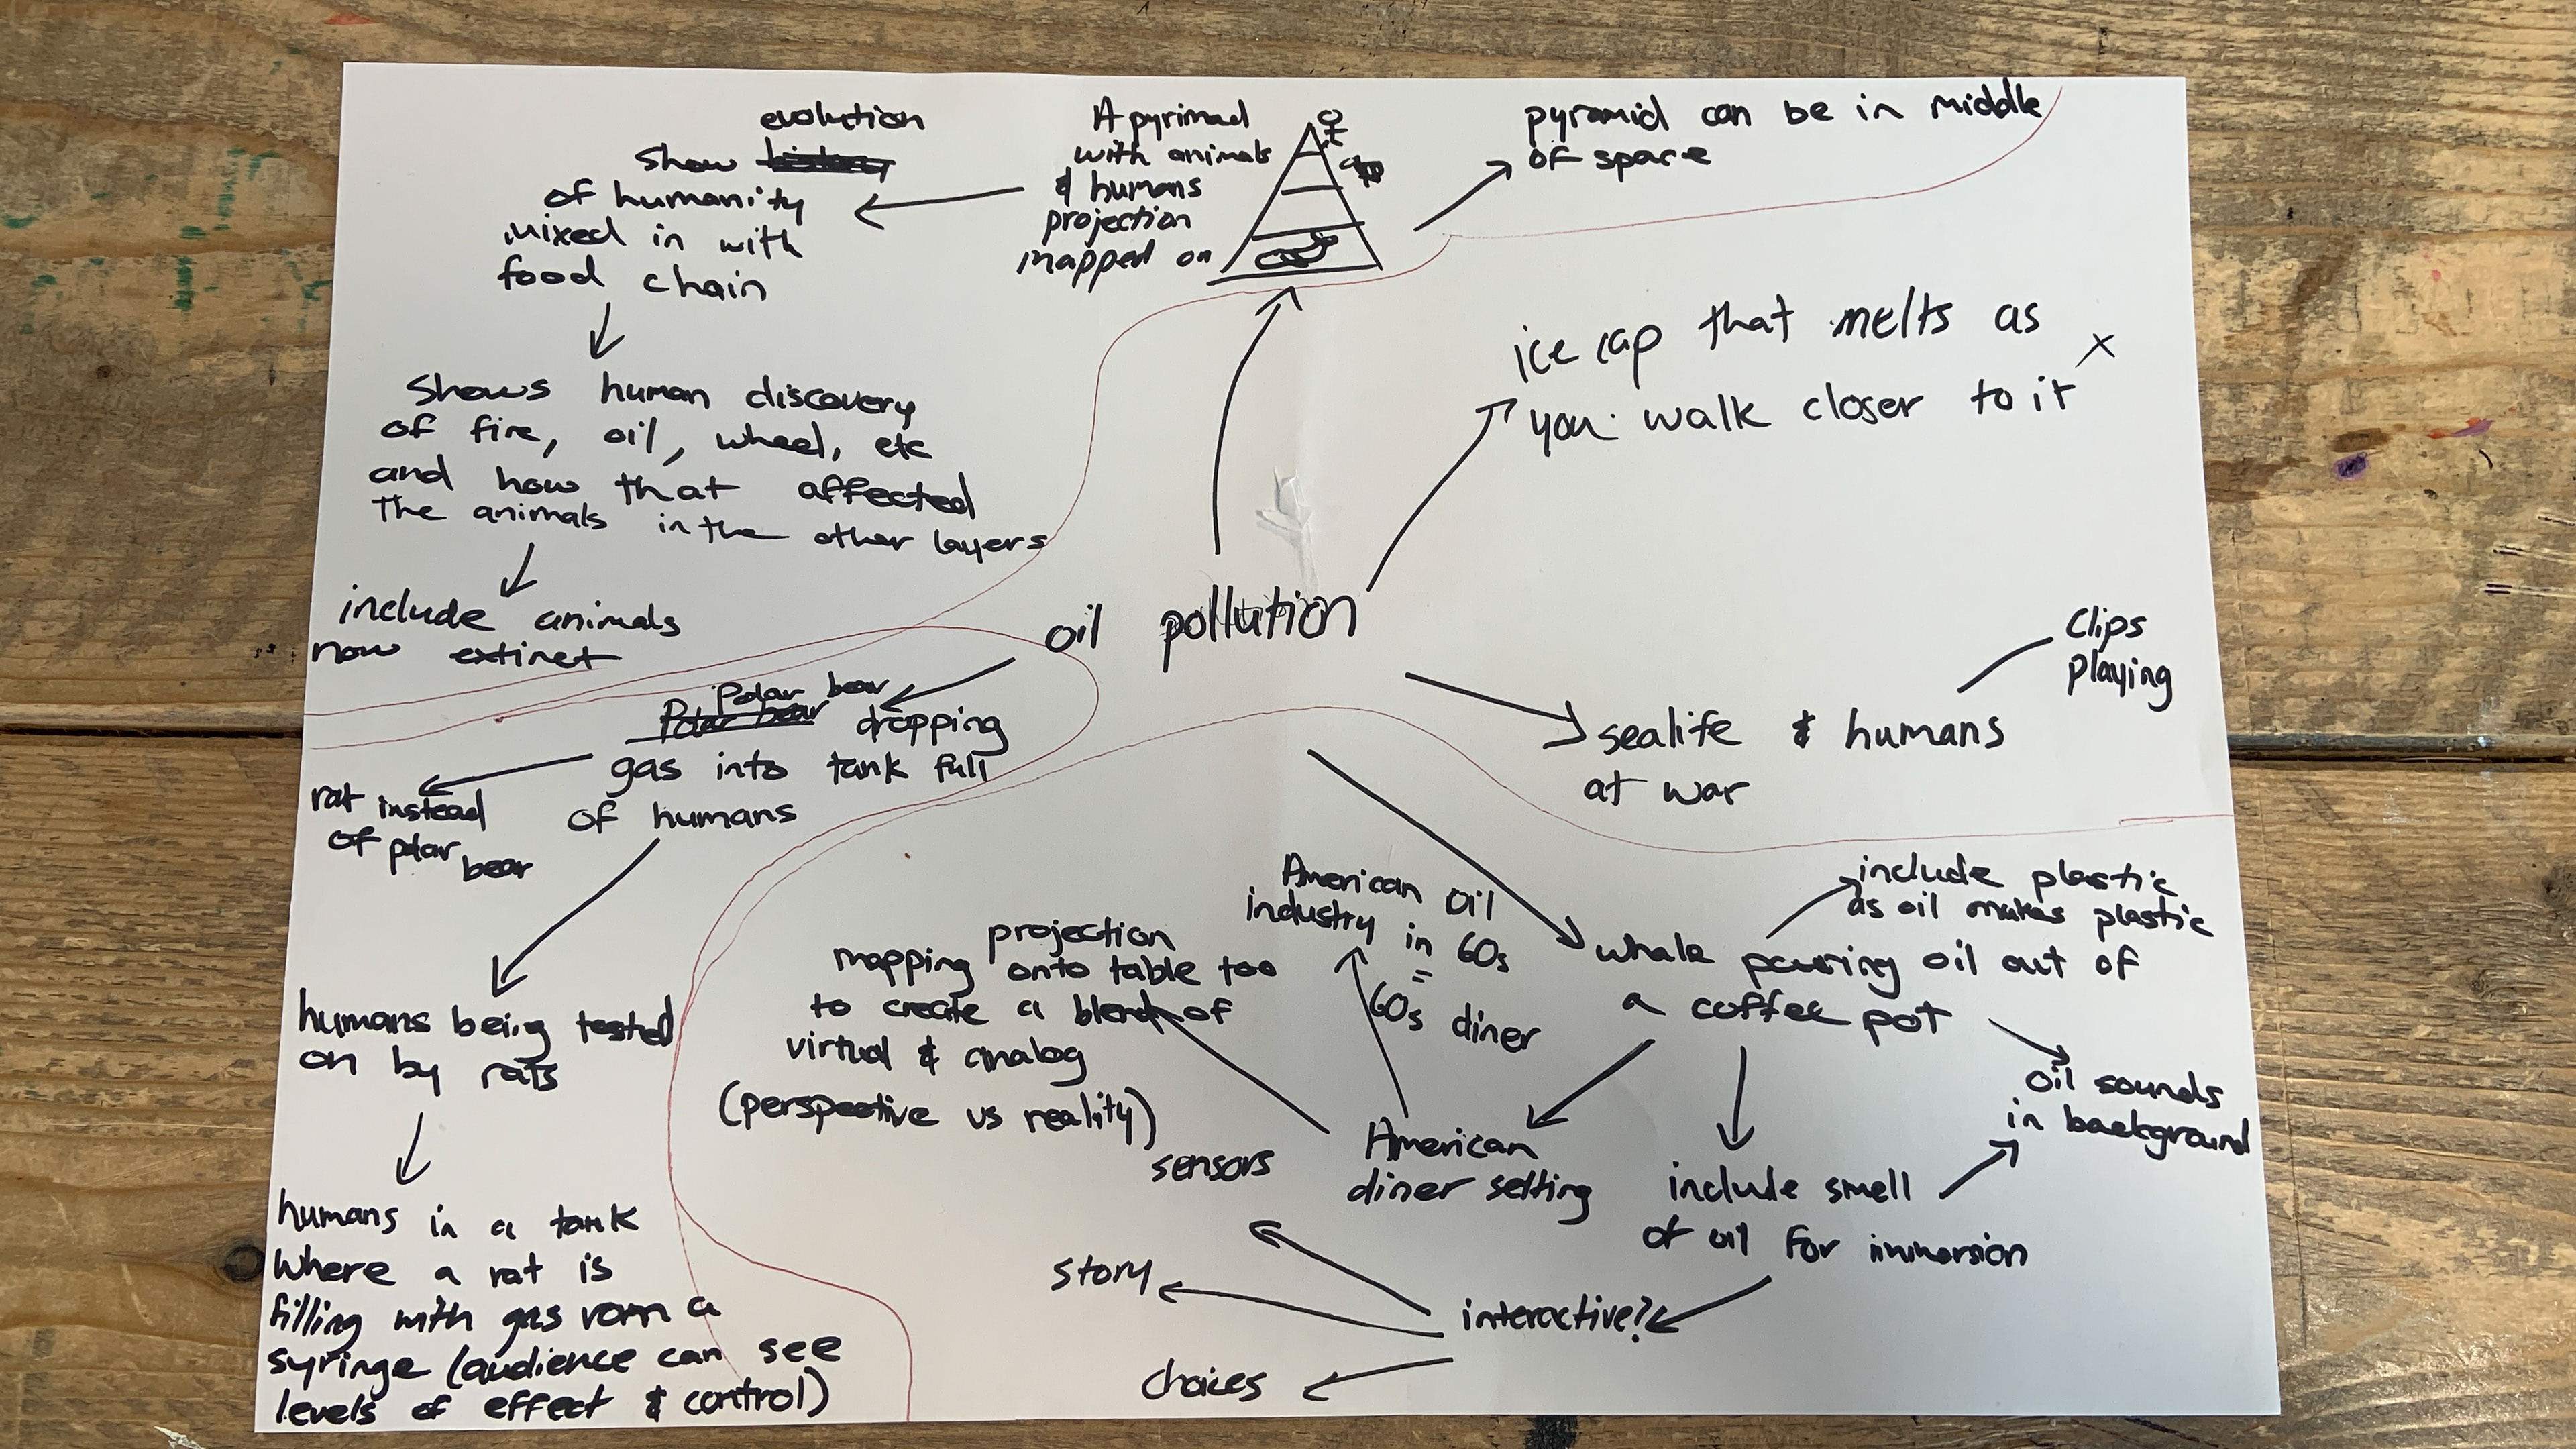 evolution
show history
of humanity
mixed in with
food chain
A pyrimad
with animals
& humans
projection
mapped on
pyramid can be in middle
of space
shows human discovery
of fire, oil, wheel, etc
and how that affected
the animals in the other layers
include animals
now extinct
ice cap that melts as
you walk closer to it x
oil pollution
Clips
playing
sealife & humans
at war
Polar bear
Polar bear dropping
gas into tank full
of humans
rat instead
of plar bear
humans being tested
on by rats
humans in a tank
where a rat is
filling with gas vom a
syringe (audience can see
levels of effect & control)
American oil
industry in 60s
=
60s diner
projection
mapping onto table too
to create a blend of
virtual & analog
(perspective vs reality)
include plastic
as oil makes plastic
whale pouring oil out of
a coffee pot
oil sounds
in background
American
diner setting
include smell
of oil for immersion
interactive?
sensors
story
choices